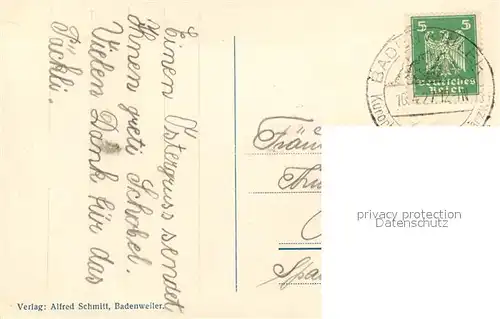 Einen Ostergruss sendet
Ihnen Grete Schobel.
Vielen Dank für das
Päckli.
Verlag: Alfred Schmitt, Badenweiler.
5 5
Deutsches
Reich
BADE
Fräu
Spa
privacy protection
AKpool.de